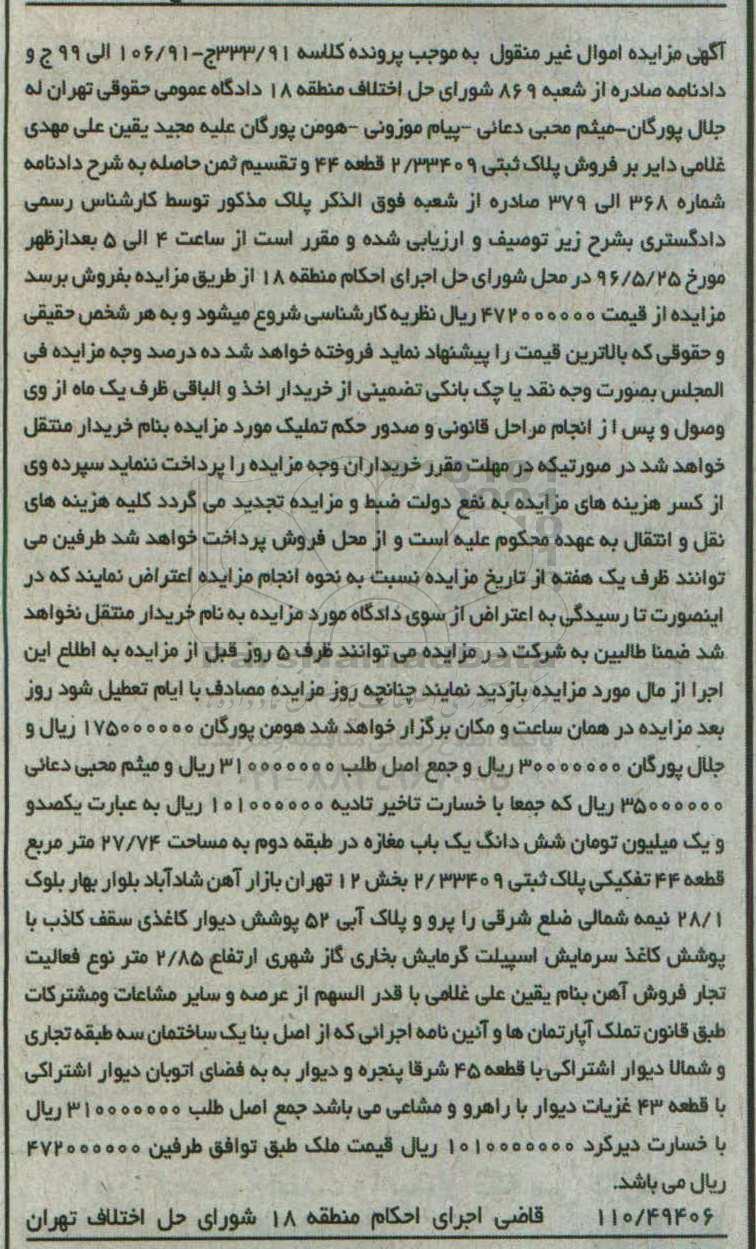 آگهی مزایده اموال غیر منقول به موجب پرونده کلاسه ۳۳۳/۹۱ج-۱۰۶/۹۱ الی ۹۹ ج و
دادنامه صادره از شعبه ۸۶۹ شورای حل اختلاف منطقه ۱۸ دادگاه عمومی حقوقی تهران له
جلال پورگان-میثم محبی دعائی -پیام موزونی -هومن پورگان علیه مجید یقین علی مهدی
غلامی دایر بر فروش پلاک ثبتی ۲/۳۳۴۰۹ قطعه ۴۴ و تقسیم ثمن حاصله به شرح دادنامه
شماره ۳۶۸ الی ۳۷۹ صادره از شعبه فوق الذکر پلاک مذکور توسط کارشناس رسمی
دادگستری بشرح زیر توصیف و ارزیابی شده و مقرر است از ساعت ۴ الی ۵ بعدازظهر
مورخ ۹۶/۵/۲۵ در محل شورای حل اجرای احکام منطقه ۱۸ از طریق مزایده بفروش برسد
مزایده از قیمت ۴۷۲۰۰۰۰۰۰ ریال نظریه کارشناسی شروع میشود و به هر شخص حقیقی
و حقوقی که بالاترین قیمت را پیشنهاد نماید فروخته خواهد شد ده درصد وجه مزایده فی
المجلس بصورت وجه نقد یا چک بانکی تضمینی از خریدار اخذ و الباقی ظرف یک ماه از وی
وصول و پس ا ز انجام مراحل قانونی و صدور حکم تملیک مورد مزایده بنام خریدار منتقل
خواهد شد در صورتیکه در مهلت مقرر خریداران وجه مزایده را پرداخت ننماید سپرده وی
از کسر هزینه های مزایده به نفع دولت ضبط و مزایده تجدید می گردد کلیه هزینه های
نقل و انتقال به عهده محکوم علیه است و از محل فروش پرداخت خواهد شد طرفین می
توانند ظرف یک هفته از تاریخ مزایده نسبت به نحوه انجام مزایده اعتراض نمایند که در
اینصورت تا رسیدگی به اعتراض از سوی دادگاه مورد مزایده به نام خریدار منتقل نخواهد
شد ضمنا طالبین به شرکت د ر مزایده می توانند ظرف ۵ روز قبل از مزایده به اطلاع این
اجرا از مال مورد مزایده بازدید نمایند چنانچه روز مزایده مصادف با ایام تعطیل شود روز
بعد مزایده در همان ساعت و مکان برگزار خواهد شد هومن پورگان ۱۷۵۰۰۰۰۰۰ ریال و
جلال پورگان ۳۰۰۰۰۰۰۰ ریال و جمع اصل طلب ۳۱۰۰۰۰۰۰۰ ریال و میثم محبی دعائی
۳۵۰۰۰۰۰۰ ریال که جمعا با خسارت تاخیر تادیه ۱۰۱۰۰۰۰۰۰ ریال به عبارت یکصدو
و یک میلیون تومان شش دانگ یک باب مغازه در طبقه دوم به مساحت ۲۷/۷۴ متر مربع
قطعه ۴۴ تفکیکی پلاک ثبتی ۲/۳۳۴۰۹ بخش ۱۲ تهران بازار آهن شادآباد بلوار بهار بلوک
۲۸/۱ نیمه شمالی ضلع شرقی را پرو و پلاک آبی ۵۲ پوشش دیوار کاغذی سقف کاذب با
پوشش کاغذ سرمایش اسپیلت گرمایش بخاری گاز شهری ارتفاع ۲/۸۵ متر نوع فعالیت
تجار فروش آهن بنام یقین علی غلامی با قدر السهم از عرصه و سایر مشاعات ومشترکات
طبق قانون تملک آپارتمان ها و آئین نامه اجرائی که از اصل بنا یک ساختمان سه طبقه تجاری
و شمالا دیوار اشتراکی با قطعه ۴۵ شرقا پنجره و دیوار به به فضای اتوبان دیوار اشتراکی
با قطعه ۴۳ غزیات دیوار با راهرو و مشاعی می باشد جمع اصل طلب ۳۱۰۰۰۰۰۰۰ ریال
با خسارت دیرکرد ۱۰۱۰۰۰۰۰۰۰ ریال قیمت ملک طبق توافق طرفین ۴۷۲۰۰۰۰۰۰
ریال می باشد.
۱۱۰/۴۹۴۰۶ قاضی اجرای احکام منطقه ۱۸ شورای حل اختلاف تهران